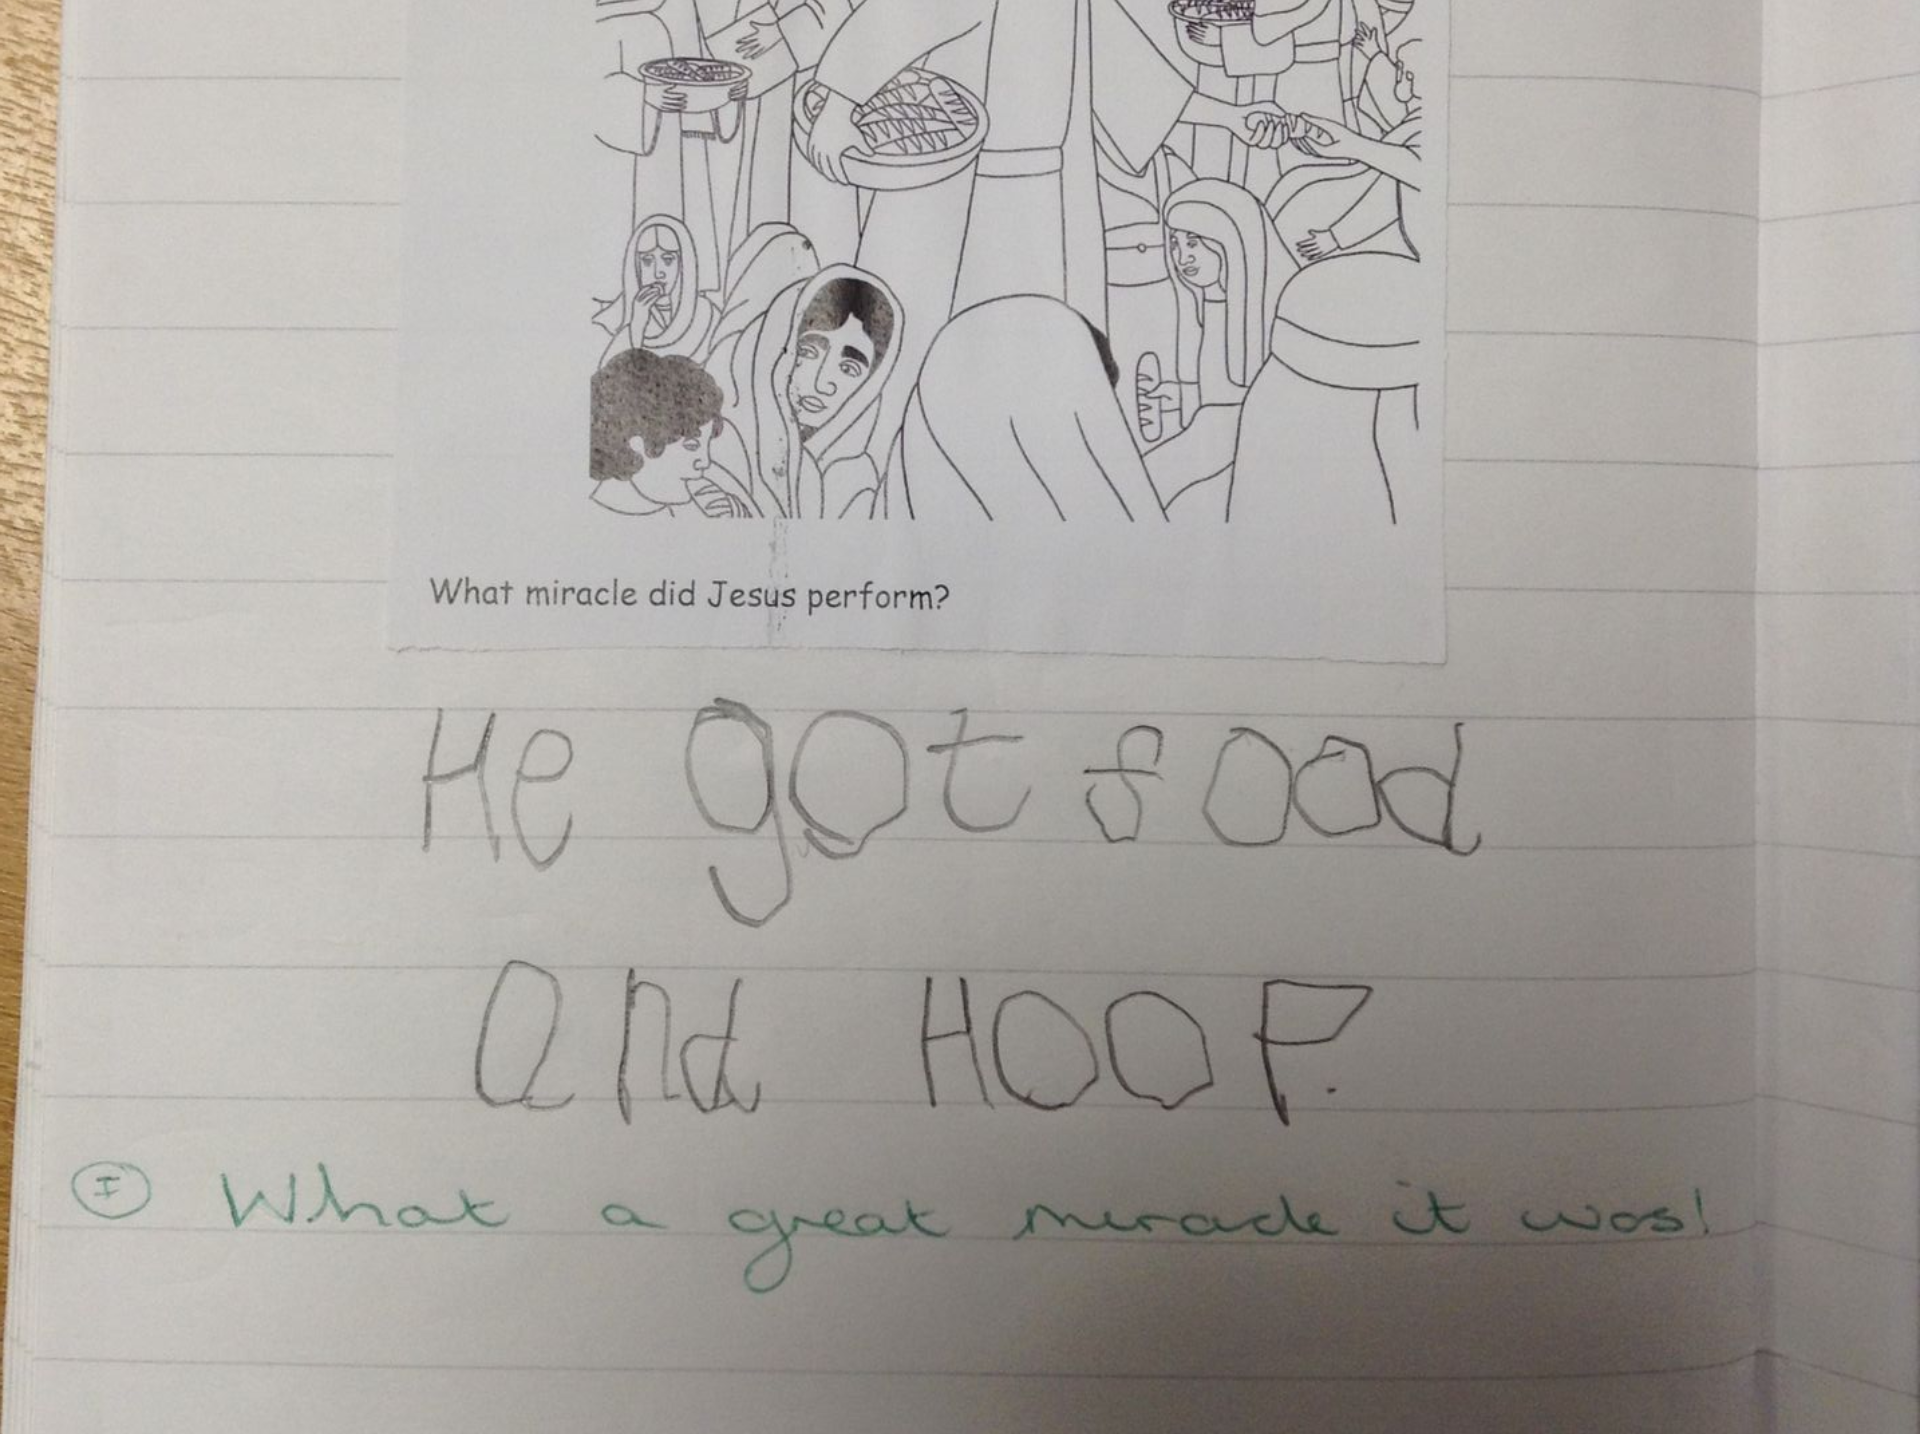 What miracle did Jesus perform?
He got food
and HOOP.
I What a great miracle it was!